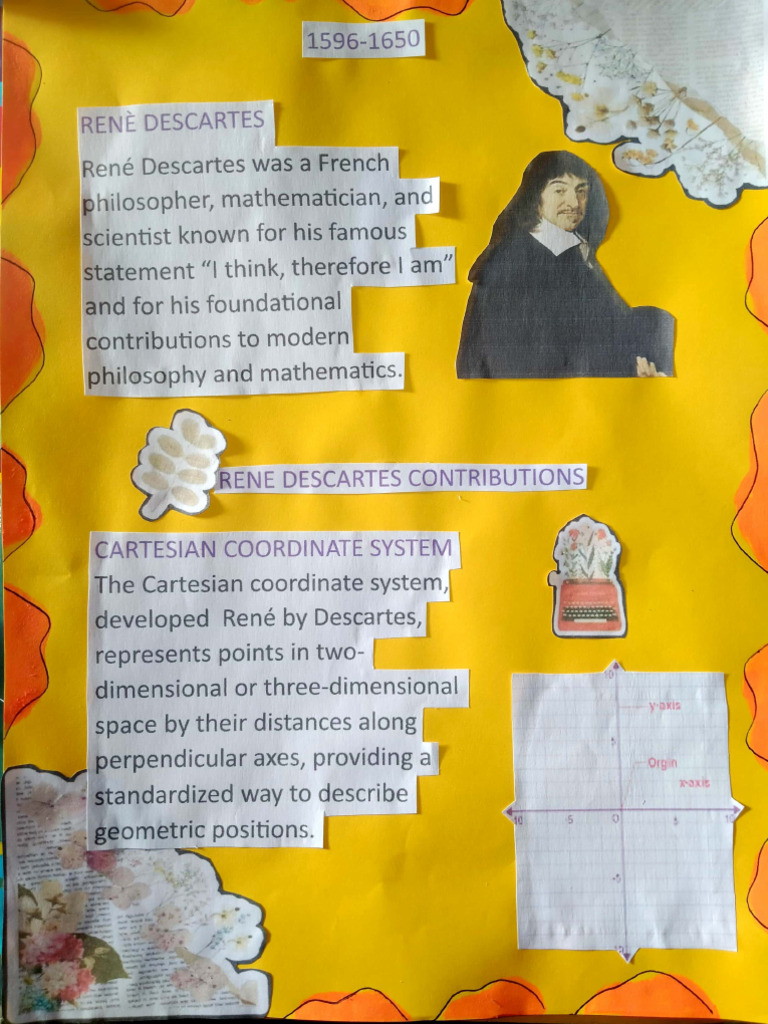 1596-1650
RENÈ DESCARTES
René Descartes was a French
philosopher, mathematician, and
scientist known for his famous
statement “I think, therefore I am”
and for his foundational
contributions to modern
philosophy and mathematics.
RENE DESCARTES CONTRIBUTIONS
CARTESIAN COORDINATE SYSTEM
The Cartesian coordinate system,
developed  René by Descartes,
represents points in two-
dimensional or three-dimensional
space by their distances along
perpendicular axes, providing a
standardized way to describe
geometric positions.
10
y-axis
5
Orgin
x-axis
10
-5
O
5
10
-5